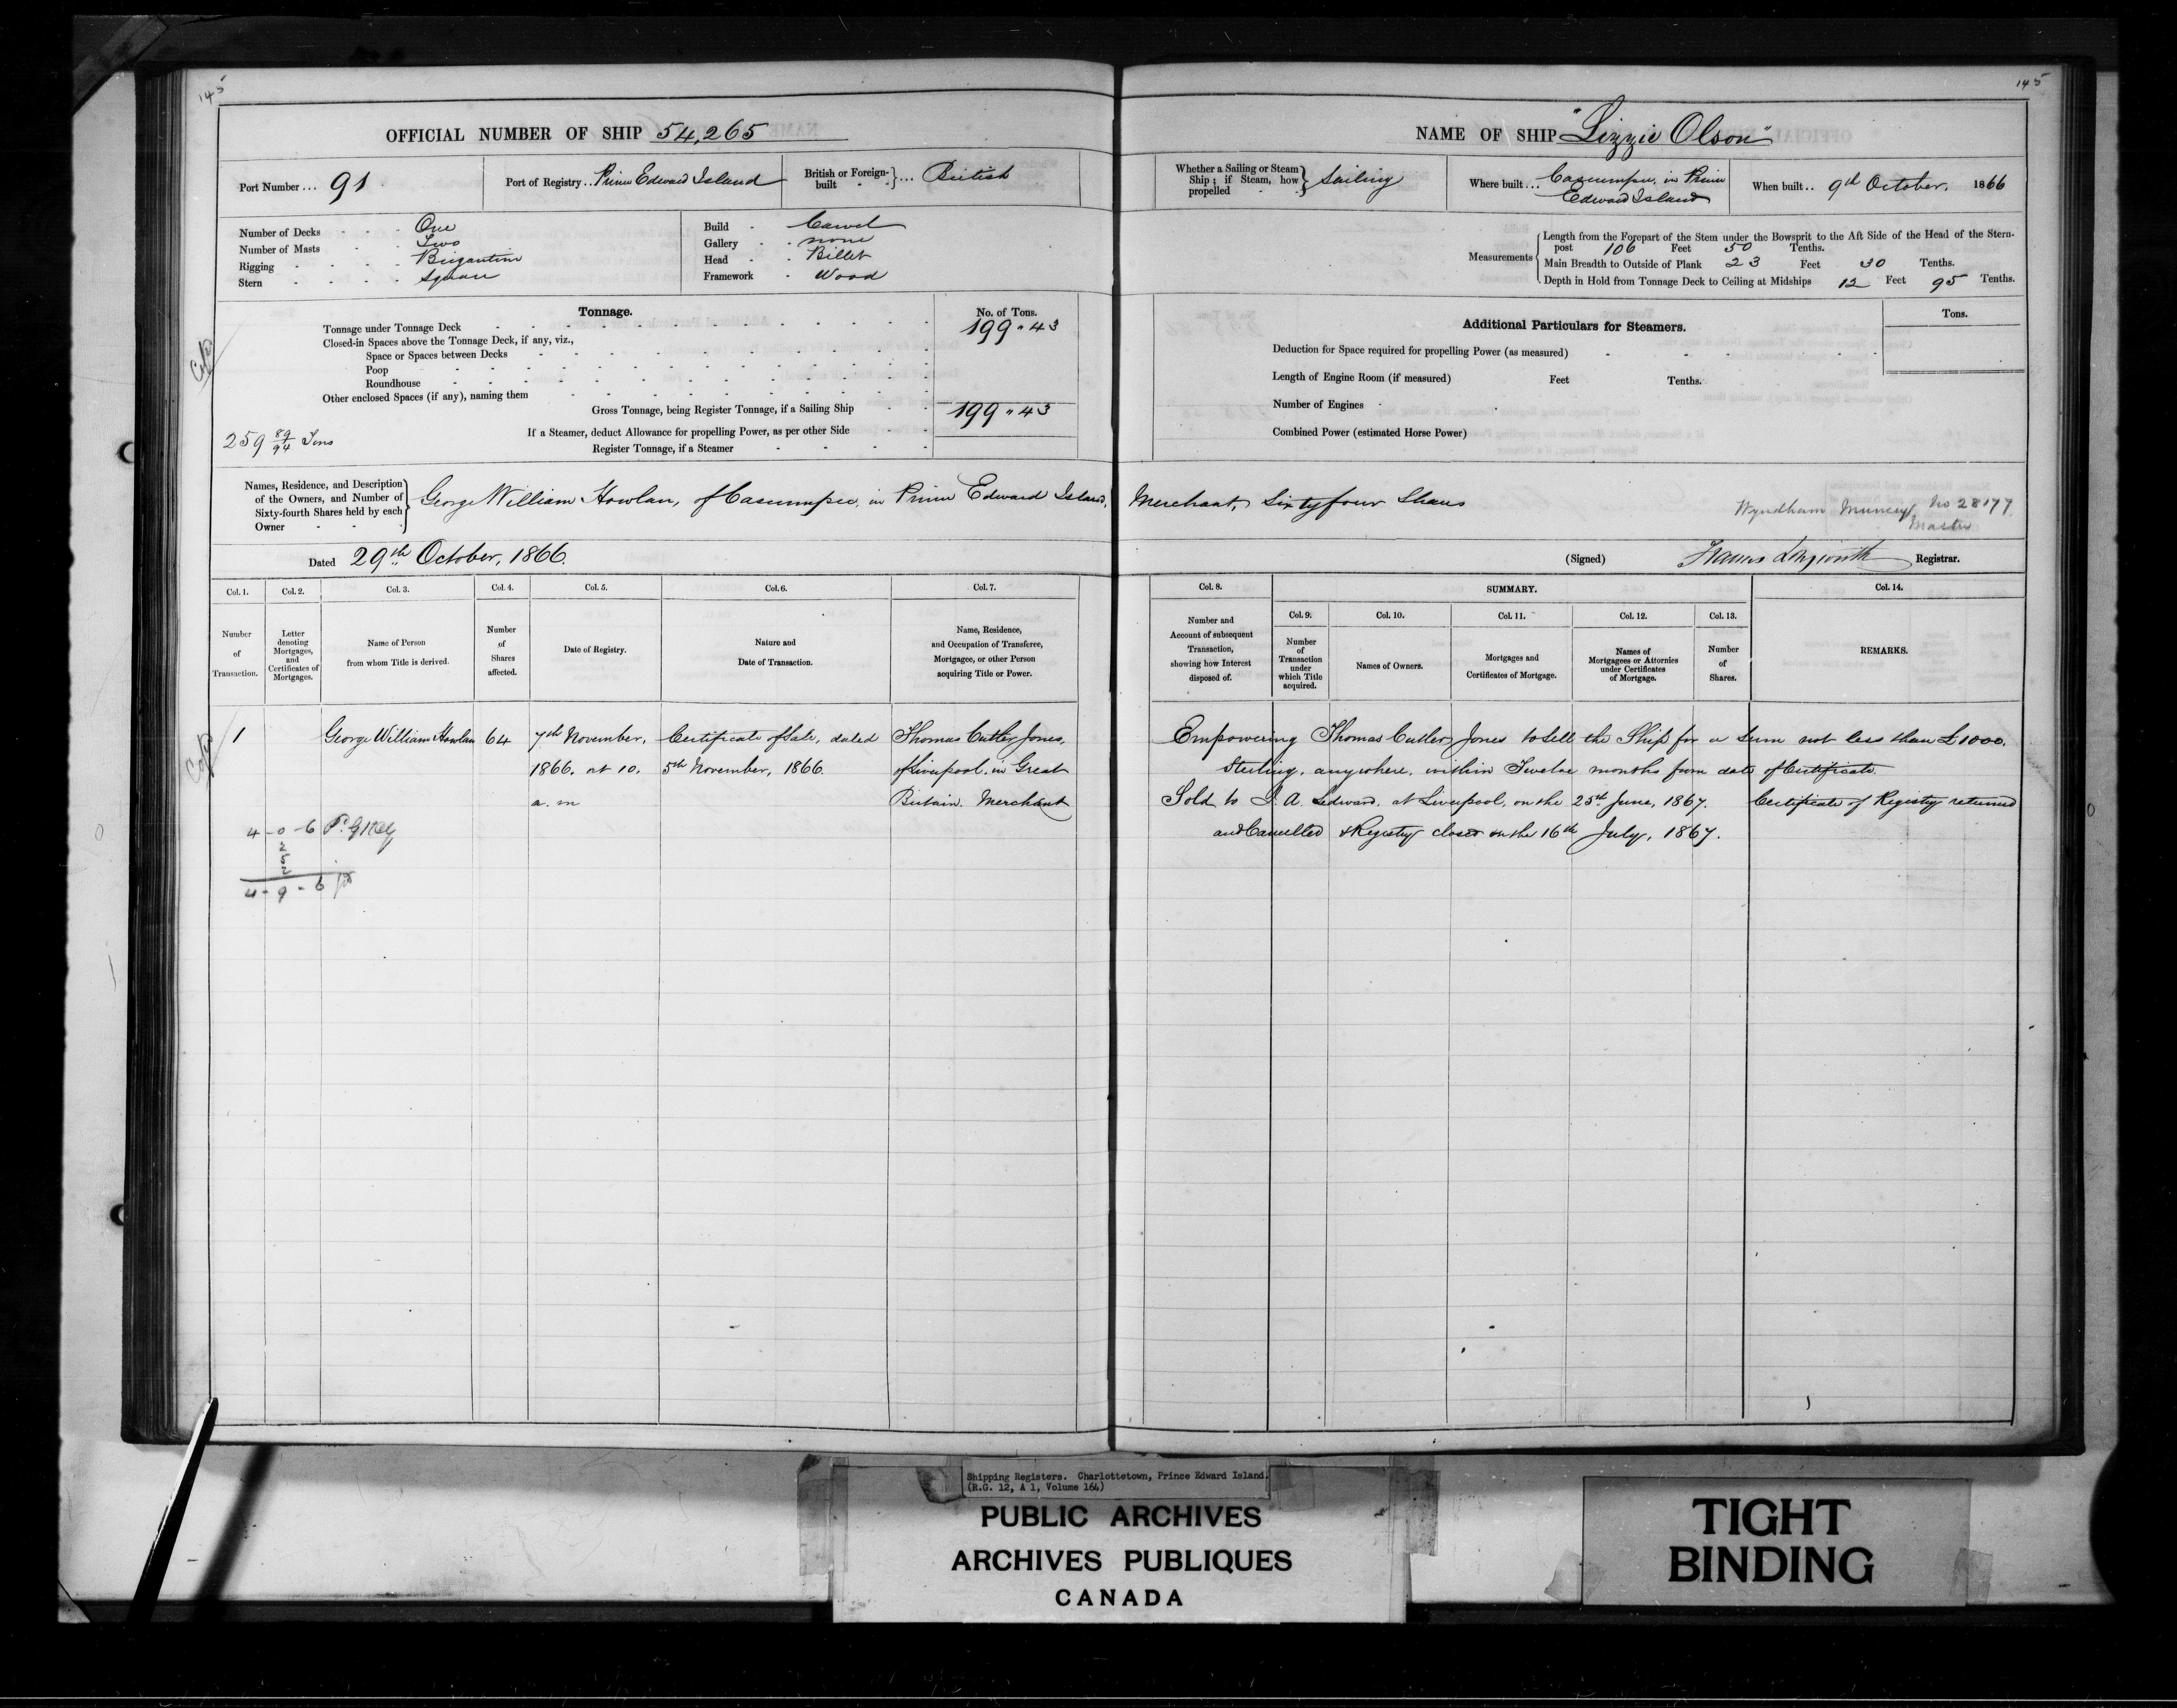 145
OFFICIAL NUMBER OF SHIP 54,265
Port Number ... 91
Port of Registry .. Prince Edward Island
British or Foreign-built } ... British
Number of Decks One
Number of Masts Two
Rigging Brigantine
Stern Square
Build Carvel
Gallery none
Head Billet
Framework Wood
Tonnage.
No. of Tons.
Tonnage under Tonnage Deck 199 " 43
Closed-in Spaces above the Tonnage Deck, if any, viz.,
Space or Spaces between Decks
Poop
Roundhouse
Other enclosed Spaces (if any), naming them
Gross Tonnage, being Register Tonnage, if a Sailing Ship 199 " 43
If a Steamer, deduct Allowance for propelling Power, as per other Side
259 89/94 Tons
Register Tonnage, if a Steamer
145
NAME OF SHIP "Lizzie Olson"
Whether a Sailing or Steam Ship; if Steam, how propelled } Sailing
Where built ... Cascumpec, in Prince
Edward Island
When built .. 9th October, 1866
Measurements
Length from the Forepart of the Stem under the Bowsprit to the Aft Side of the Head of the Stern-
post 106 Feet 50 Tenths.
Main Breadth to Outside of Plank 23 Feet 30 Tenths.
Depth in Hold from Tonnage Deck to Ceiling at Midships 12 Feet 95 Tenths.
Additional Particulars for Steamers.
Tons.
Deduction for Space required for propelling Power (as measured)
Length of Engine Room (if measured) Feet Tenths.
Number of Engines
Combined Power (estimated Horse Power)
Names, Residence, and Description
of the Owners, and Number of
Sixty-fourth Shares held by each
Owner
George William Howlan, of Cascumpec, in Prince Edward Island, Merchant, Sixty four Shares
Wyndham No 28177
Master
Dated 29th October, 1866.
(Signed) Francis Longworth Registrar.
Col. 1.
Number of Transaction.
Col. 2.
Letter denoting Mortgages, and Certificates of Mortgages.
Col. 3.
Name of Person from whom Title is derived.
Col. 4.
Number of Shares affected.
Col. 5.
Date of Registry.
Col. 6.
Nature and Date of Transaction.
Col. 7.
Name, Residence, and Occupation of Transferee, Mortgagee, or other Person acquiring Title or Power.
Col. 8.
Number and Account of subsequent Transaction, showing how Interest disposed of.
SUMMARY.
Col. 9.
Number of Transaction under which Title acquired.
Col. 10.
Names of Owners.
Col. 11.
Mortgages and Certificates of Mortgage.
Col. 12.
Names of Mortgagees or Attornies under Certificates of Mortgage.
Col. 13.
Number of Shares.
Col. 14.
REMARKS.
1
George William Howlan
64
7th November,
1866. at 10.
a. m
Certificate of Sale, dated
5th November, 1866.
Thomas Cutler Jones,
of Liverpool, in Great
Britain. Merchant
Empowering Thomas Cutler Jones to sell the Ship for a Sum not less than £1000.
Sterling, anywhere, within Twelve months from date of Certificate.
Sold to J. A. Ledward, at Liverpool, on the 25th June, 1867. Certificate of Registry returned
and Cancelled & Registry closed on the 16th July, 1867.
4 - 0 - 6
2
5
2
4 - 9 - 6
Shipping Registers. Charlottetown, Prince Edward Island.
(R.G. 12, A 1, Volume 164)
PUBLIC ARCHIVES
ARCHIVES PUBLIQUES
CANADA
TIGHT
BINDING